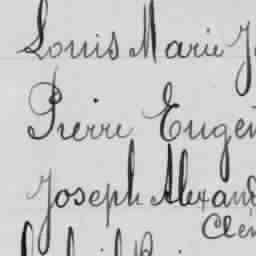 Louis Marie J
Pierre Eugen
Joseph Alexand
Clém